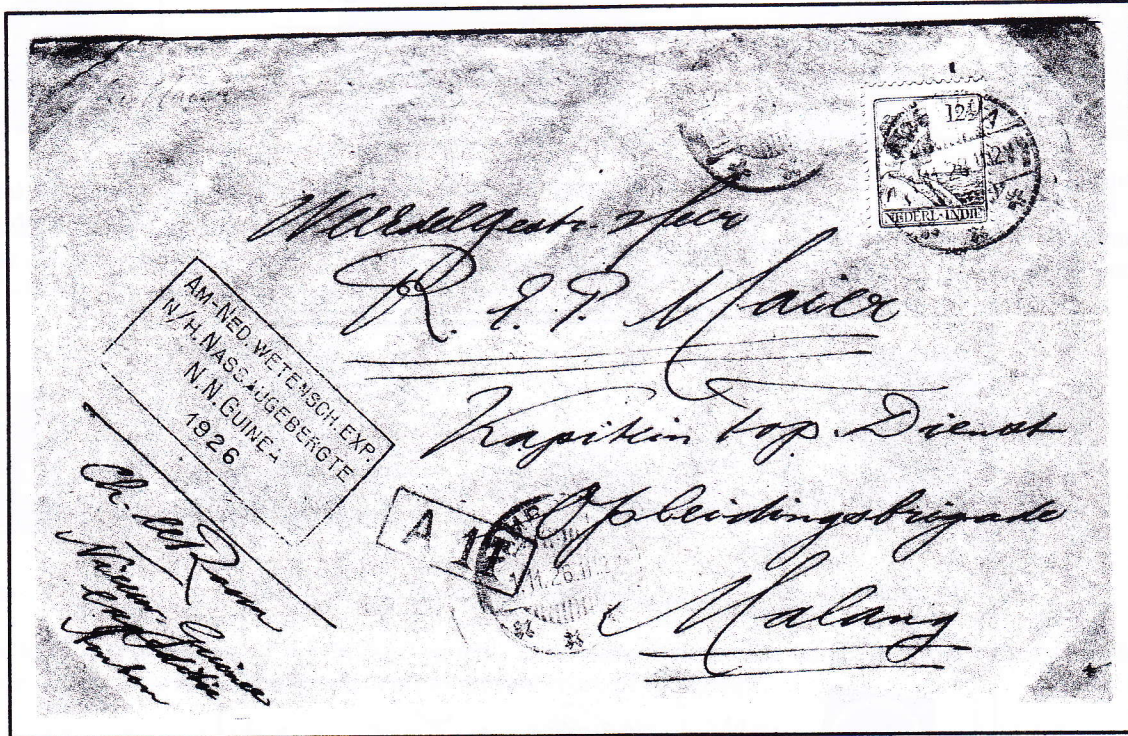 12½
NEDERL-INDIE
WelEdelgestr. Heer
R. E. P. Maier
Kapitein top. Dienst
Opleidingsbrigade
Malang
AM-NED. WETENSCH. EXP.
N/H. NASSAUGEBERGTE
N. N. GUINEA
1926
A 17
1.11.26
Ch. le Roux
Nieuw Guinea
Expeditie
Ambon